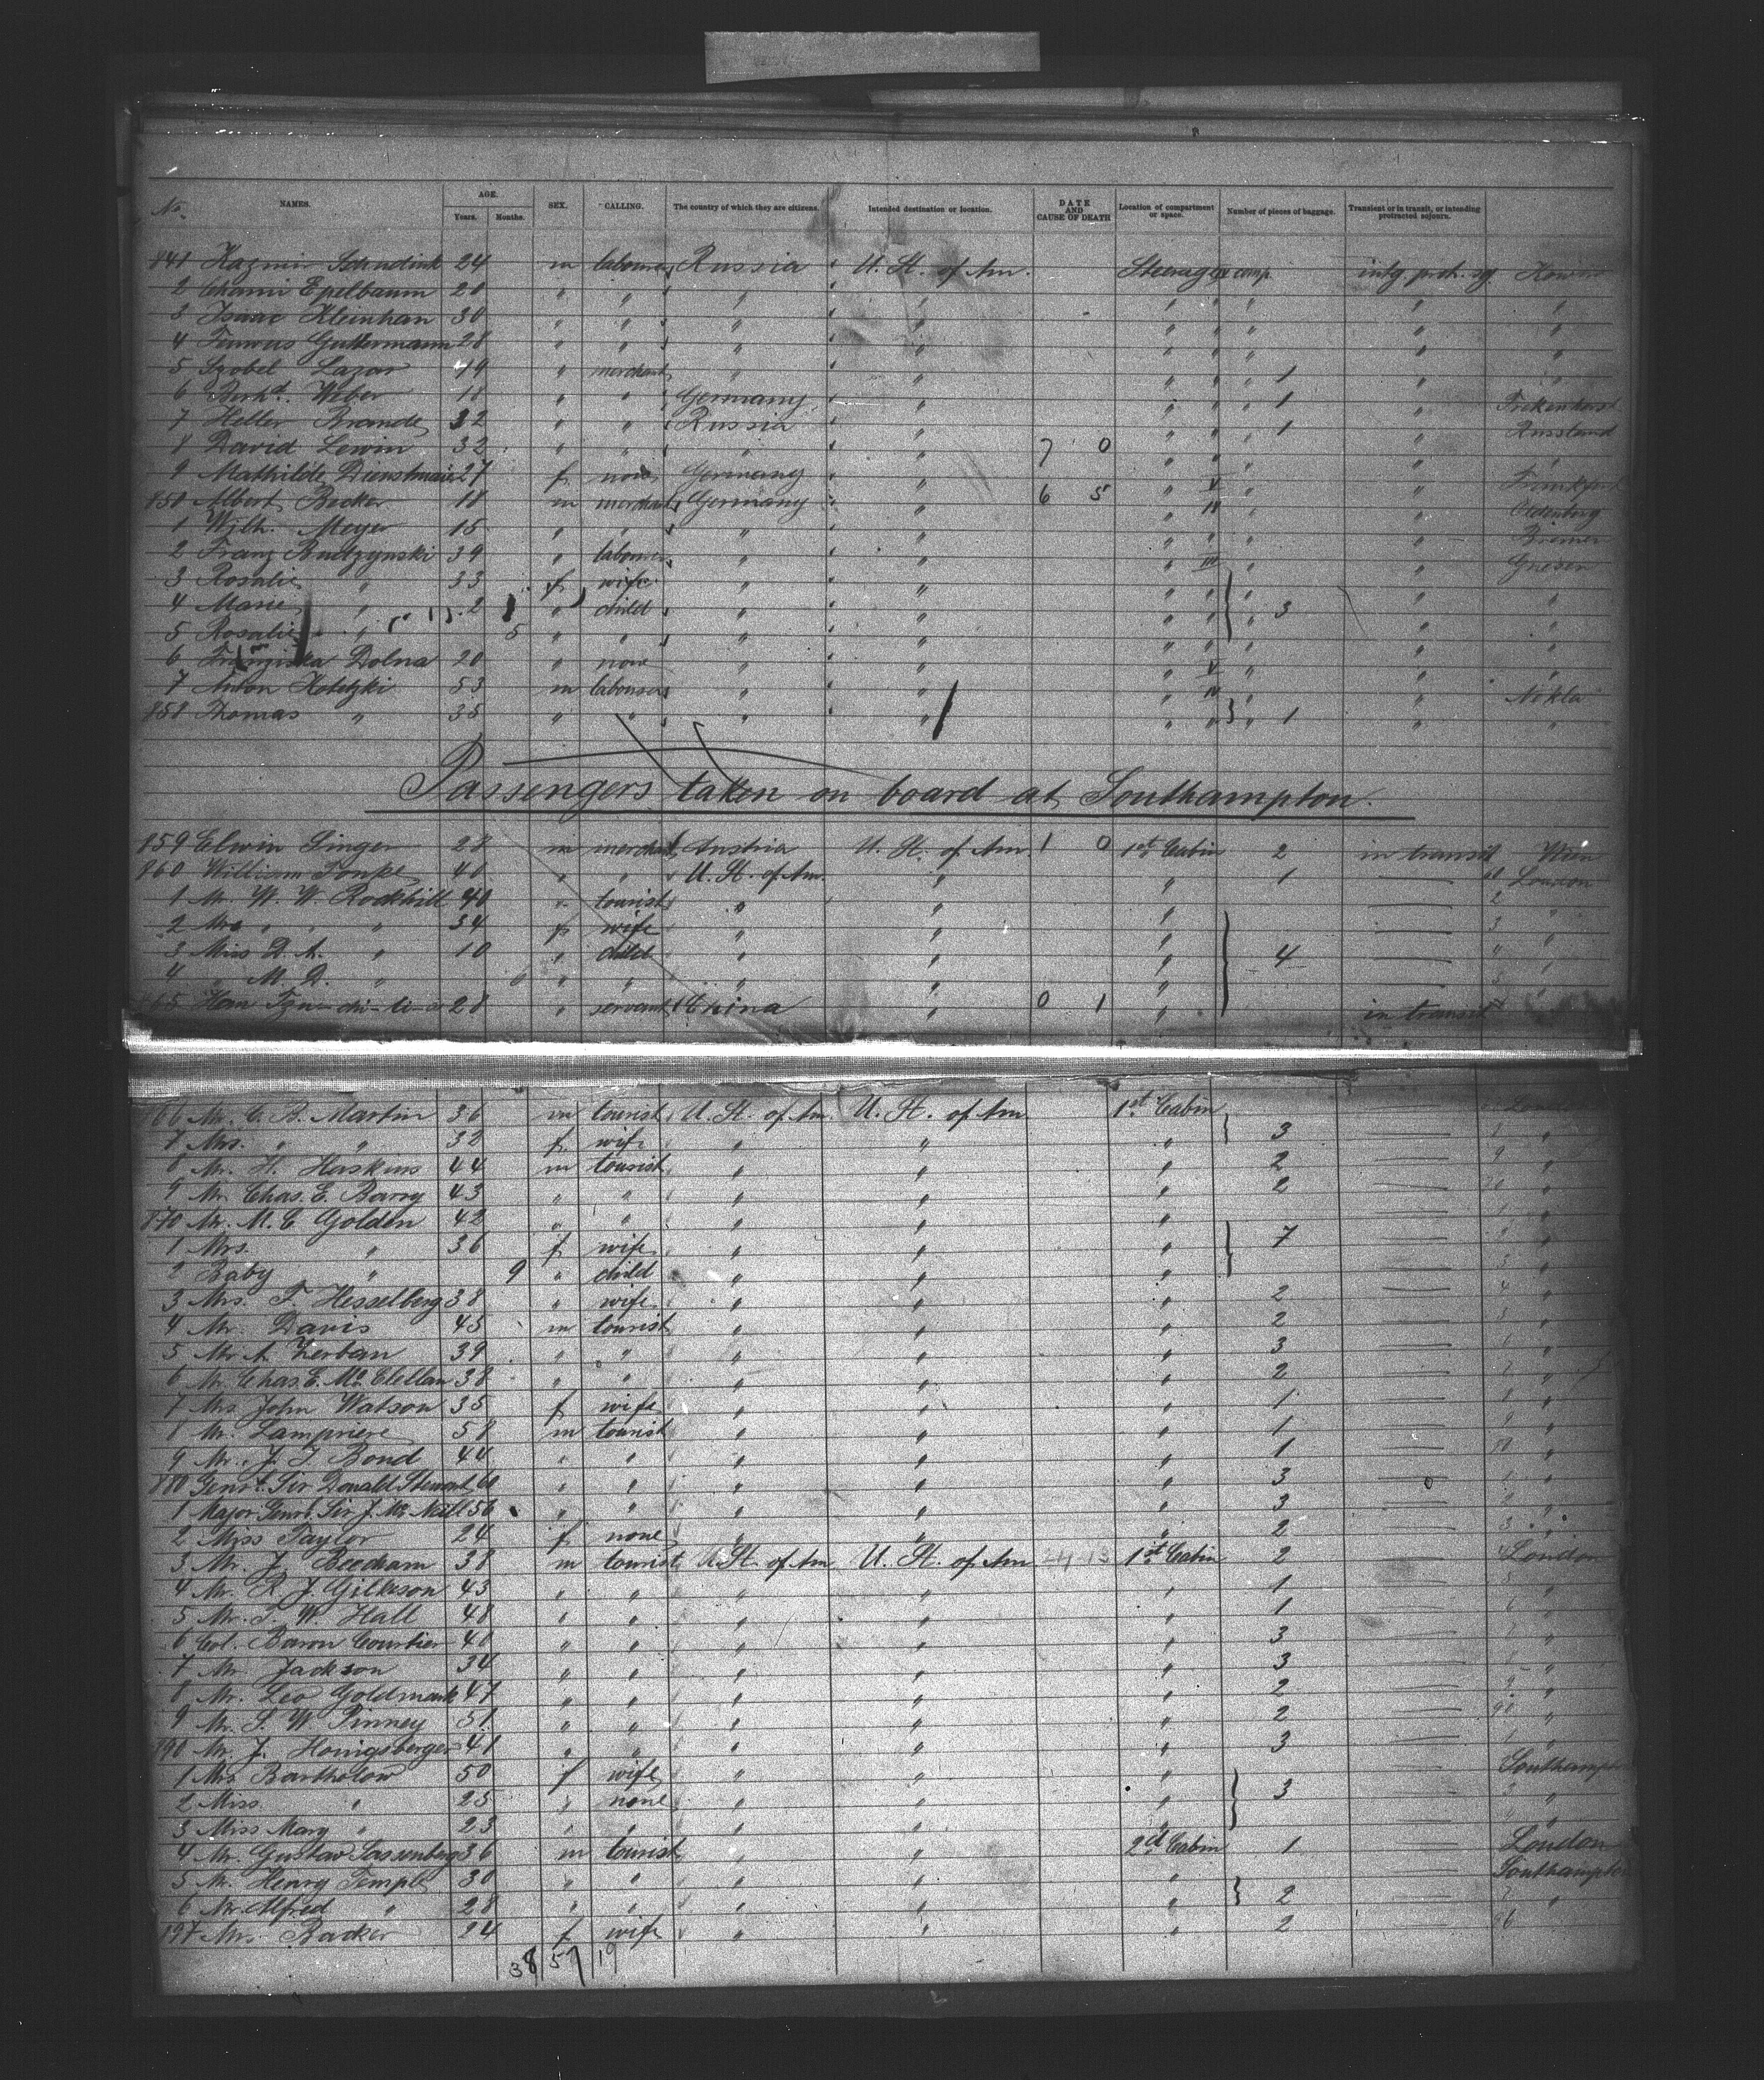 No. NAMES. AGE. Years. Months. SEX. CALLING. The country of which they are citizens. Intended destination or location. DATE AND CAUSE OF DEATH Location of compartment or space. Number of pieces of baggage. Transient or in transit, or intending protracted sojourn.
841 24 m labourer Russia U. St. of Am. Steerage comp. intg. prot. soj.
2 Chami Epelbaum 20 " " " " " " " " "
3 Isaac Kleinhan 30 " " " " " " " " "
4 Guttermann 28 " " " " " " " " "
5 Szobel Lazar 19 " merchant " " " " " 1 " "
6 Berhd. Weber 18 " " Germany " " " " 1 "
7 Heller Brande 32 " " Russia " " " " 1 " Russland
8 David Lewin 32 " " " " 7 0 " " " " "
9 Mathilde Dienstmaier 27 f none Germany " " V " " Frankfurt
850 Albert Becker 18 m merchant Germany " 6 5 " IV " " Oldenburg
1 Wilh. Meyer 15 " " " " " " " " Bremen
2 Franz Budzynski 39 " labourer " " " III " " Gnesen
3 Rosalie " 33 f wife " " " " " " "
4 Marie " 2 " child " " " " " 3 " "
5 Rosalie " 5 " " " " " " " " "
6 Franziska Dolna 20 " none " " " V " " "
7 Anton Kotetzki 53 m labourer " " " IV " " Nokla
858 Thomas " 35 " " " " " " " 1 " "
Passengers taken on board at Southampton.
859 Elwin Singer 28 m merchant Austria U. St. of Am. 1 0 1st Cabin 2 in transit Wien
860 William Fonke 40 " " U. St. of Am. " " 1 London
1 Mr. W. W. Rockhill 40 " tourist " " " 2 "
2 Mrs. " " " 34 f wife " " " 3 "
3 Miss D. A. " 10 " child " " " 4 "
4 " M. D. " 6 " " " " " "
865 28 " servant China " 0 1 " in transit
66 Mr. C. A. Martin 36 m tourist U. St. of Am. U. St. of Am. 1st Cabin London
7 Mrs. " " 32 f wife " " " 3 "
8 Mr. H. Haskins 44 m tourist " " " 2 "
9 Mr. Chas. E. Barry 43 " " " " " 2 "
870 Mr. M. C. Golden 42 " " " " " "
1 Mrs. " 36 f wife " " " 7 "
2 Baby " 9 " child " " " "
3 Mrs. F. Hesselberg 38 " wife " " " 2 "
4 Mr. Davis 45 m tourist " " " 2 "
5 Mr. A. Zerban 39 " " " " " 3 "
6 Mr. Chas. E. McClellan 38 " " " " " 2 "
7 Mrs. John Watson 35 f wife " " " 1 "
8 Mr. Lampriere 58 m tourist " " " 1 "
9 Mr. J. T. Bond 44 " " " " " 1 "
880 Genrl. Sir Donald Stewart 60 " " " " " 3 "
1 Major Genrl. Sir J. Mc Neill 56 " " " " " 3 "
2 Miss Taylor 24 f none " " " 2 "
3 Mr. J. Beecham 38 m tourist U. St. of Am. U. St. of Am. 1st Cabin 2 London
4 Mr. R. J. Gilkeson 43 " " " " " 1 "
5 Mr. T. W. Hall 48 " " " " " 1 "
6 Col. Baron Courtier 40 " " " " " 3 "
7 Mr. Jackson 34 " " " " " 3 "
8 Mr. Leo Goldmark 47 " " " " " 2 "
9 Mr. S. W. Pinney 51 " " " " " 2 "
890 Mr. J. Honigsberger 41 " " " " " 3 "
1 Mrs. Bartholow 50 f wife " " " Southampton
2 Miss " 25 " none " " " 3 "
3 Miss Mary " 23 " " " " " "
4 Mr. Gustav 36 m tourist " " 2d Cabin 1 London
5 Mr. Henry Temple 30 " " " " " Southampton
6 Mr. Alfred " 28 " " " " " 2 "
897 Mrs. Backer 24 f wife " " " 2
38 57 19